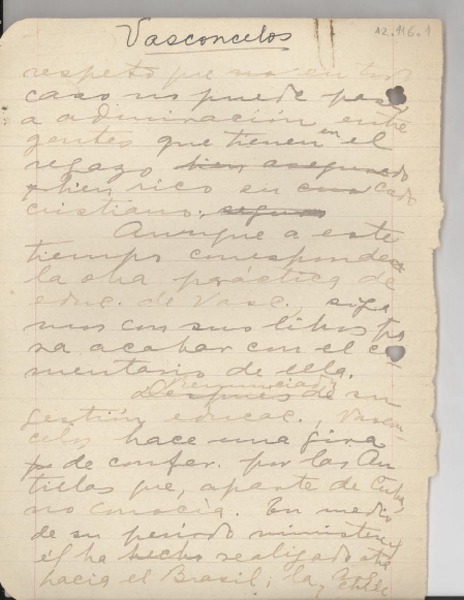 Vasconcelos
A2.116.1
respeto que no en tal
caso no puede pasar
a admiración entre
gentes que tienen en el
regazo bien asegurado
bien rico su cado
cristiano.
Aunque a este
tiempo corresponde
la obra práctica de
educ. de Vasc., siga
mos con sus libros pa
ra acabar con el co
mentario de ella.
Después de su
gestión educac., Vascon-
celos hace una gira
de confer. por las An
tillas que, aparte de Cuba,
no conocía. En medio
de su período ministerial
él ha hecho realizado otra
hacia el Brasil; la
Chile